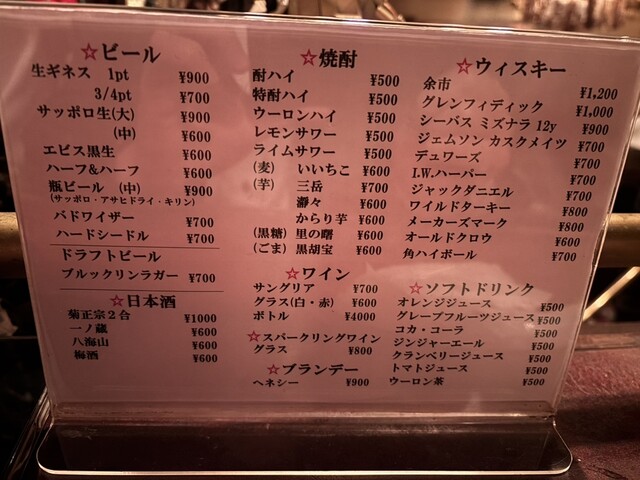 ☆ビール
生ギネス 1pt ¥900
3/4pt ¥700
サッポロ生(大) ¥900
(中) ¥600
エビス黒生 ¥600
ハーフ&ハーフ ¥600
瓶ビール (中) ¥900
(サッポロ・アサヒドライ・キリン)
バドワイザー ¥700
ハードシードル ¥700
ドラフトビール
ブルックリンラガー ¥700
☆日本酒
菊正宗２合 ¥1000
一ノ蔵 ¥600
八海山 ¥600
梅酒 ¥600
☆焼酎
酎ハイ ¥500
特酎ハイ ¥500
ウーロンハイ ¥500
レモンサワー ¥500
ライムサワー ¥500
(麦) いいちこ ¥600
(芋) 三岳 ¥700
瀞々 ¥600
からり芋 ¥600
(黒糖) 里の曙 ¥600
(ごま) 黒胡宝 ¥600
☆ワイン
サングリア ¥700
グラス(白・赤) ¥600
ボトル ¥4000
☆スパークリングワイン
グラス ¥800
☆ブランデー
ヘネシー ¥900
☆ウィスキー
余市 ¥1,200
グレンフィディック ¥1,000
シーバス ミズナラ 12y ¥900
ジェムソン カスクメイツ ¥700
デュワーズ ¥700
I.W.ハーパー ¥700
ジャックダニエル ¥700
ワイルドターキー ¥800
メーカーズマーク ¥800
オールドクロウ ¥600
角ハイボール ¥700
☆ソフトドリンク
オレンジジュース ¥500
グレープフルーツジュース ¥500
コカ・コーラ ¥500
ジンジャーエール ¥500
クランベリージュース ¥500
トマトジュース ¥500
ウーロン茶 ¥500